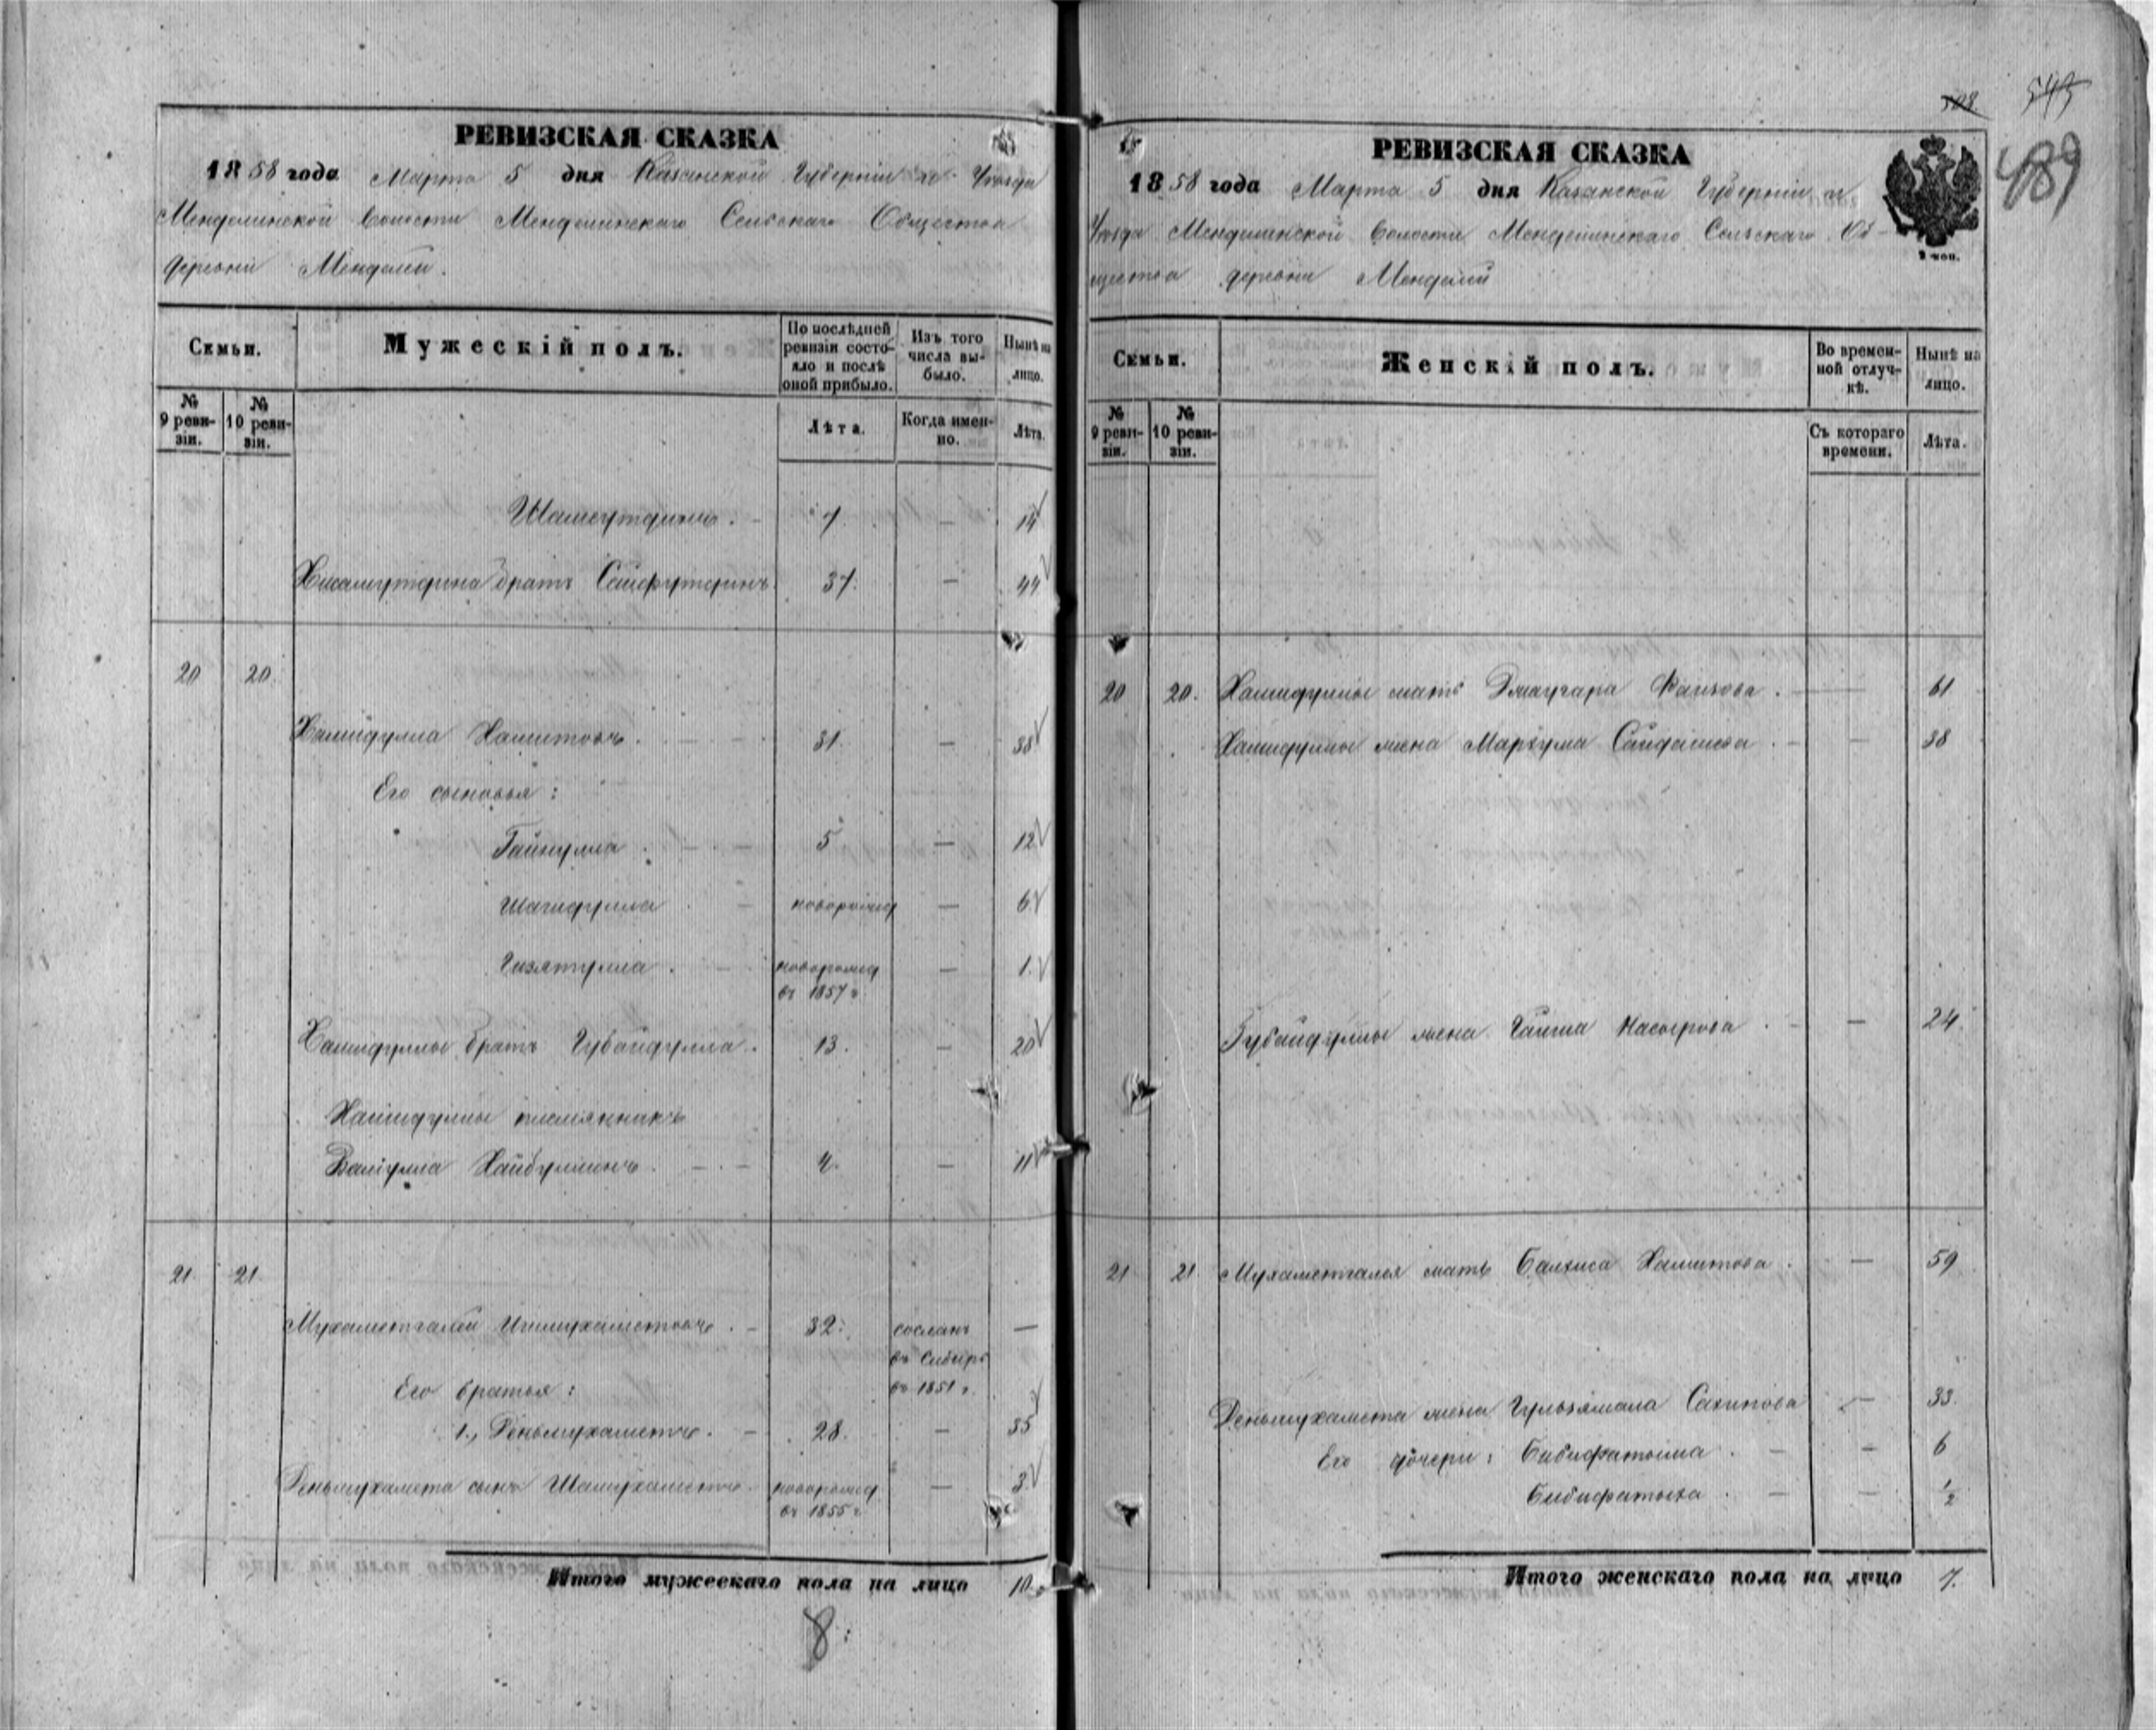 543
508
489
РЕВИЗСКАЯ СКАЗКА
1858 года Марта 5 дня Казанской Губерніи и Уѣзда
Менделинской Волости Менделинскаго Сельскаго Общества
деревни Менделей.
Семьи.
Мужескій полъ.
По послѣдней ревизіи состояло и послѣ оной прибыло.
Изъ того числа выбыло.
Нынѣ на лицо.
№ 9 ревизіи.
№ 10 ревизіи.
Лѣта.
Когда именно.
Лѣта.
Шамсутдинъ. 7 — 14
Хисамутдина братъ Сайфутдинъ 37. — 44
20 20
Хамидулла Хамитовъ. 31. — 38
Его сыновья:
Гайнулла. 5 — 12
Шагидулла новорожд — 6
Гизятулла. новорожд въ 1857 г. — 1.
Хамидуллы братъ Губайдулла. 13. — 20
Хамидуллы племянникъ
Валіулла Хайбуллинъ. 4. — 11
21 21
Мухаметгалей Ишмухаметовъ. 32. сосланъ въ Сибирь въ 1851 г. —
Его братья:
1., Деньмухаметъ. 28. — 35
Деньмухамета сынъ Шамухаметъ новорожд въ 1855 г. — 3.
Итого мужескаго пола на лицо 10.
8.
РЕВИЗСКАЯ СКАЗКА
1858 года Марта 5 дня Казанской Губерніи и
Уѣзда Менделинской Волости Менделинскаго Сельскаго Об-
щества деревни Менделей
Семьи.
Женскій полъ.
Во временной отлучкѣ.
Нынѣ на лицо.
№ 9 ревизіи.
№ 10 ревизіи.
Съ котораго времени.
Лѣта.
20 20. Хамидуллы мать Фаизова. — 61
Хамидуллы жена Марзума Сайдашева. — 38
Губайдуллы жена Гайша Насырова. — 24.
21 21 Мухаметгалея мать Балхиса Хамитова. — 59
Деньмухамета жена Гульзямала Сахипова — 33.
Его дочери: Бибифатыма. — 6
Бибифатыха. — 1/2
Итого женскаго пола на лицо 7.